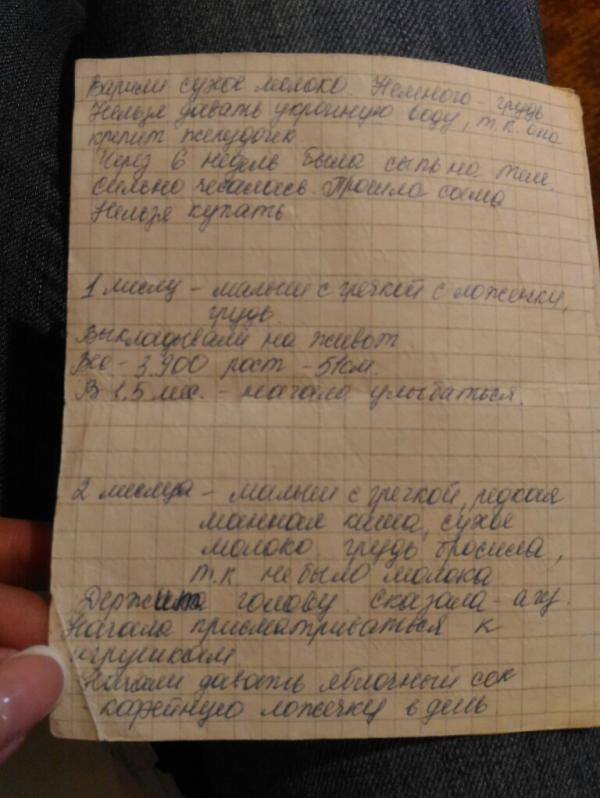 Варили сухое молоко. Немного - грудь
Нельзя давать укропную воду, т.к. она
крепит желудочек
Через 6 недель была сыпь на теле.
сильно чесалась. Прошла сама
Нельзя купать
1 месяц - малыш с гречкой с ложечки,
грудь
Выкладывали на живот
Вес - 3.900 рост - 51 см.
В 1,5 мес. - начала улыбаться.
2 месяца - малыш с гречкой, редкая
манная каша, сухое
молоко, грудь бросила,
т.к. не было молока
Держит голову. сказала - агу.
Начала присматриваться к
игрушкам
Начали давать яблочный сок
кофейную ложечку в день